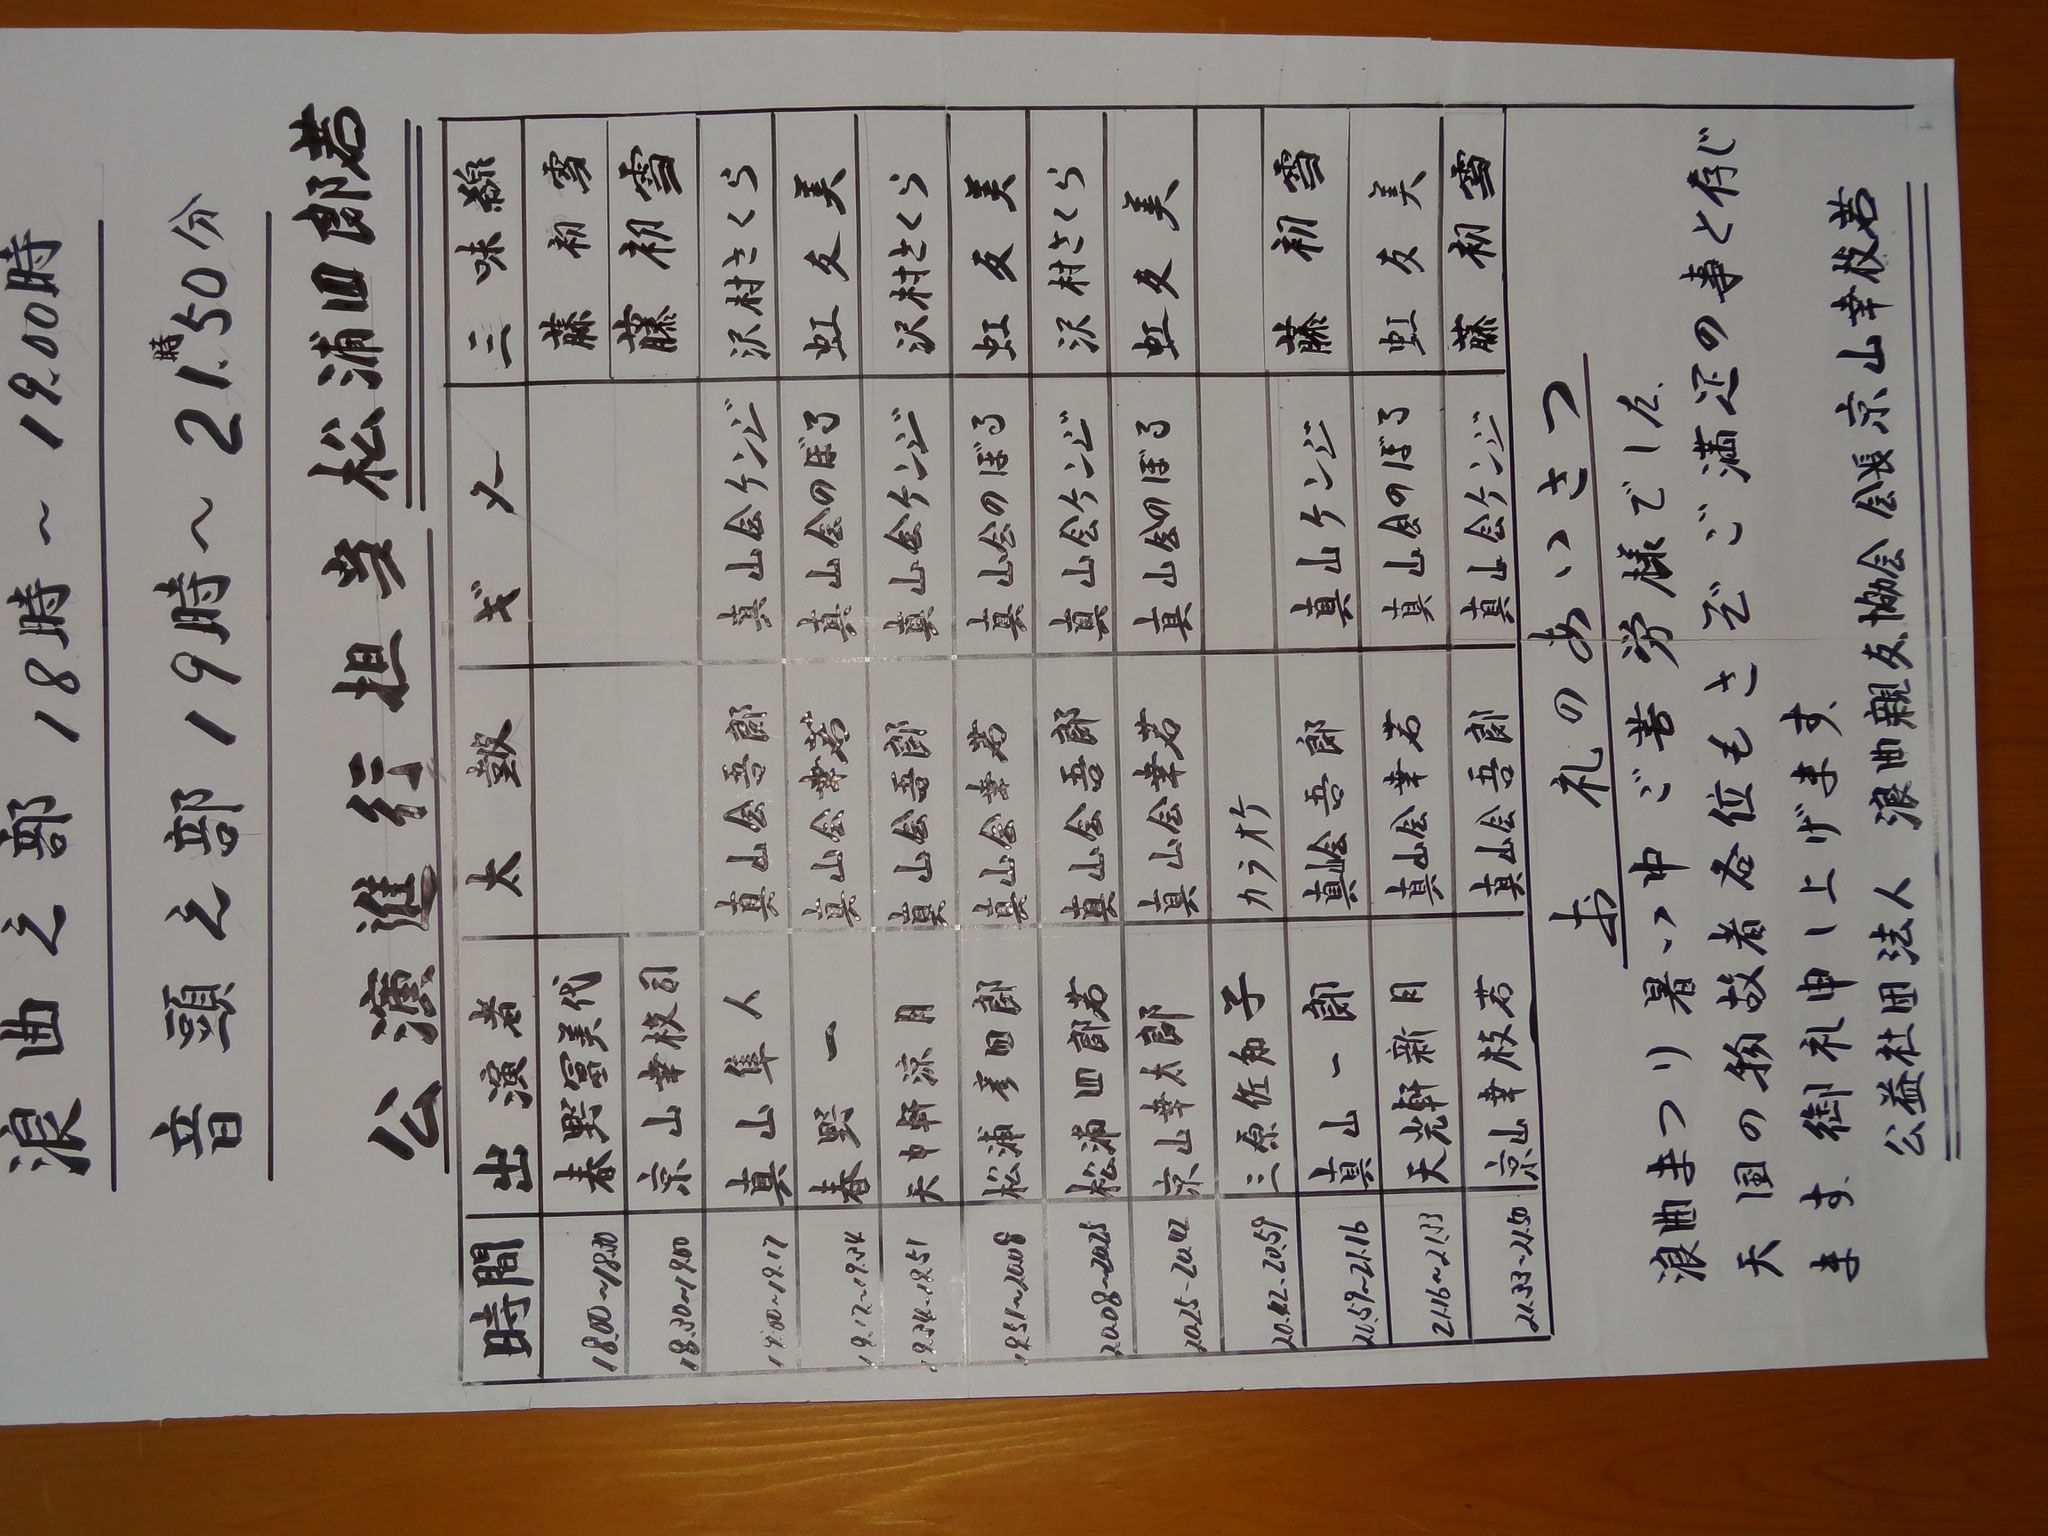 浪曲之部 18時～19.00時
音頭之部 19時～21.時50分
公演進行担当 松浦四郎若
時間 出演者 太鼓 ギター 三味線
18.00～18.30 春野冨美代 藤初雪
18.30～19.00 京山幸枝司 藤初雪
19.00～19.17 真山隼人 真山会吾郎 真山会ケンジ 沢村さくら
19.17～19.34 春野一 真山会幸若 真山会のぼる 虹友美
19.34～19.51 天中軒涼月 真山会吾郎 真山会ケンジ 沢村さくら
19.51～20.08 松浦彦四郎 真山会幸若 真山会のぼる 虹友美
20.08～20.25 松浦四郎若 真山会吾郎 真山会ケンジ 沢村さくら
20.25～20.42 京山幸太郎 真山会幸若 真山会のぼる 虹友美
20.42～20.59 三原佐知子 カラオケ
21.59～21.16 真山一郎 真山会吾郎 真山ケンジ 藤初雪
21.16～21.33 天光軒新月 真山会幸若 真山会のぼる 虹友美
21.33～21.50 京山幸枝若 真山会吾郎 真山会ケンジ 藤初雪
お礼のあいさつ
浪曲まつり暑い中ご苦労様でした、
天国の物故者各位もさぞご満足の事と存じ
ます、御礼申し上げます、
公益社団法人 浪曲親友協会会長京山幸枝若